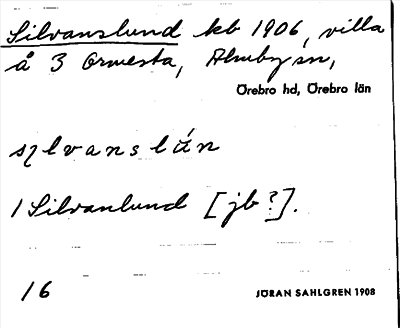 Silvanslund kb 1906, villa
å 3 Ormesta, Almby sn,
Örebro hd, Örebro län
1 Silvanlund [jb?].
16
JÖRAN SAHLGREN 1908